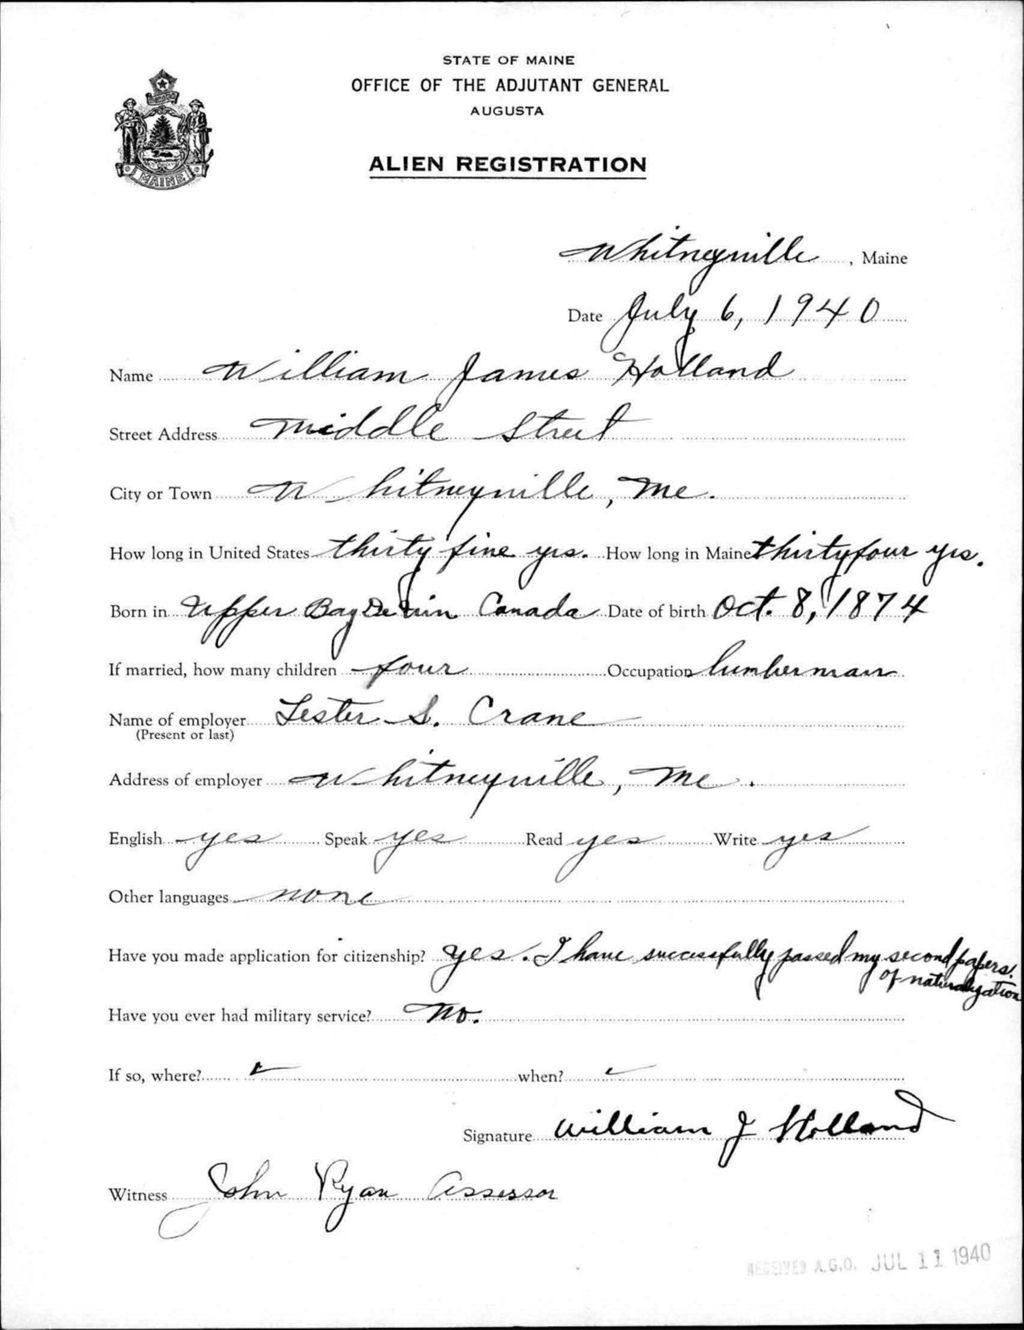 STATE OF MAINE
OFFICE OF THE ADJUTANT GENERAL
AUGUSTA
ALIEN REGISTRATION
MAINE
Whitneyville, Maine
Date July 6, 1940
Name William James Holland
Street Address Middle Street
City or Town Whitneyville, Me.
How long in United States thirty five yrs. How long in Maine thirty four yrs.
Born in Upper Bay Du Vin Canada Date of birth Oct. 8, 1874
If married, how many children four Occupation lumberman
Name of employer Lester S. Crane
(Present or last)
Address of employer Whitneyville, Me.
English yes Speak yes Read yes Write yes
Other languages none
Have you made application for citizenship? yes. I have successfully passed my second papers.
of naturalization
Have you ever had military service? No.
If so, where? when?
Signature William J Holland
Witness John Ryan Assessor
RECEIVED A.G.O. JUL 11 1940